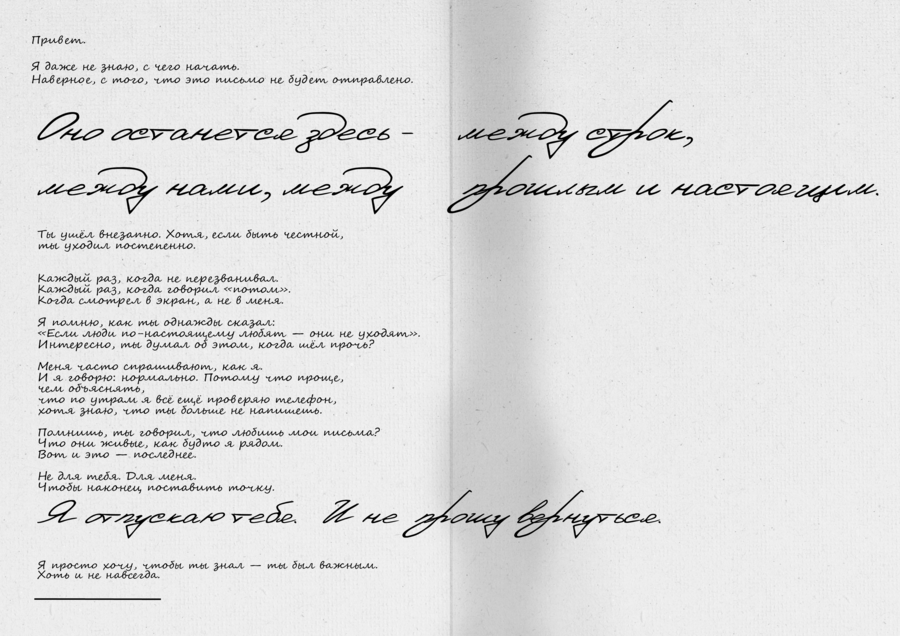 Привет.
Я даже не знаю, с чего начать.
Наверное, с того, что это письмо не будет отправлено.
Оно останется здесь – между строк,
между нами, между прошлым и настоящим.
Ты ушёл внезапно. Хотя, если быть честной,
ты уходил постепенно.
Каждый раз, когда не перезванивал.
Каждый раз, когда говорил «потом».
Когда смотрел в экран, а не в меня.
Я помню, как ты однажды сказал:
«Если люди по-настоящему любят — они не уходят».
Интересно, ты думал об этом, когда шёл прочь?
Меня часто спрашивают, как я.
И я говорю: нормально. Потому что проще,
чем объяснять,
что по утрам я всё ещё проверяю телефон,
хотя знаю, что ты больше не напишешь.
Помнишь, ты говорил, что любишь мои письма?
Что они живые, как будто я рядом.
Вот и это — последнее.
Не для тебя. Для меня.
Чтобы наконец поставить точку.
Я отпускаю тебе. И не прошу вернуться.
Я просто хочу, чтобы ты знал — ты был важным.
Хоть и не навсегда.